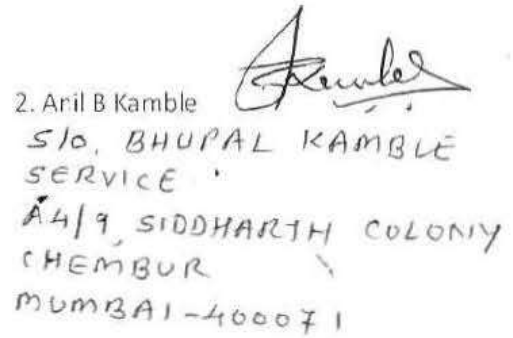 2. Anil B Kamble
S/O. BHUPAL KAMBLE
SERVICE
A4/9, SIDDHARTH COLONY
CHEMBUR
MUMBAI-400071